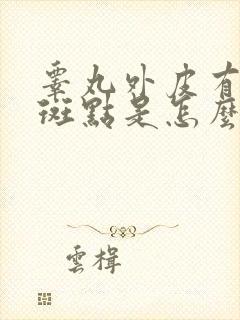 睪丸外皮有
斑點是怎麼
雲揖